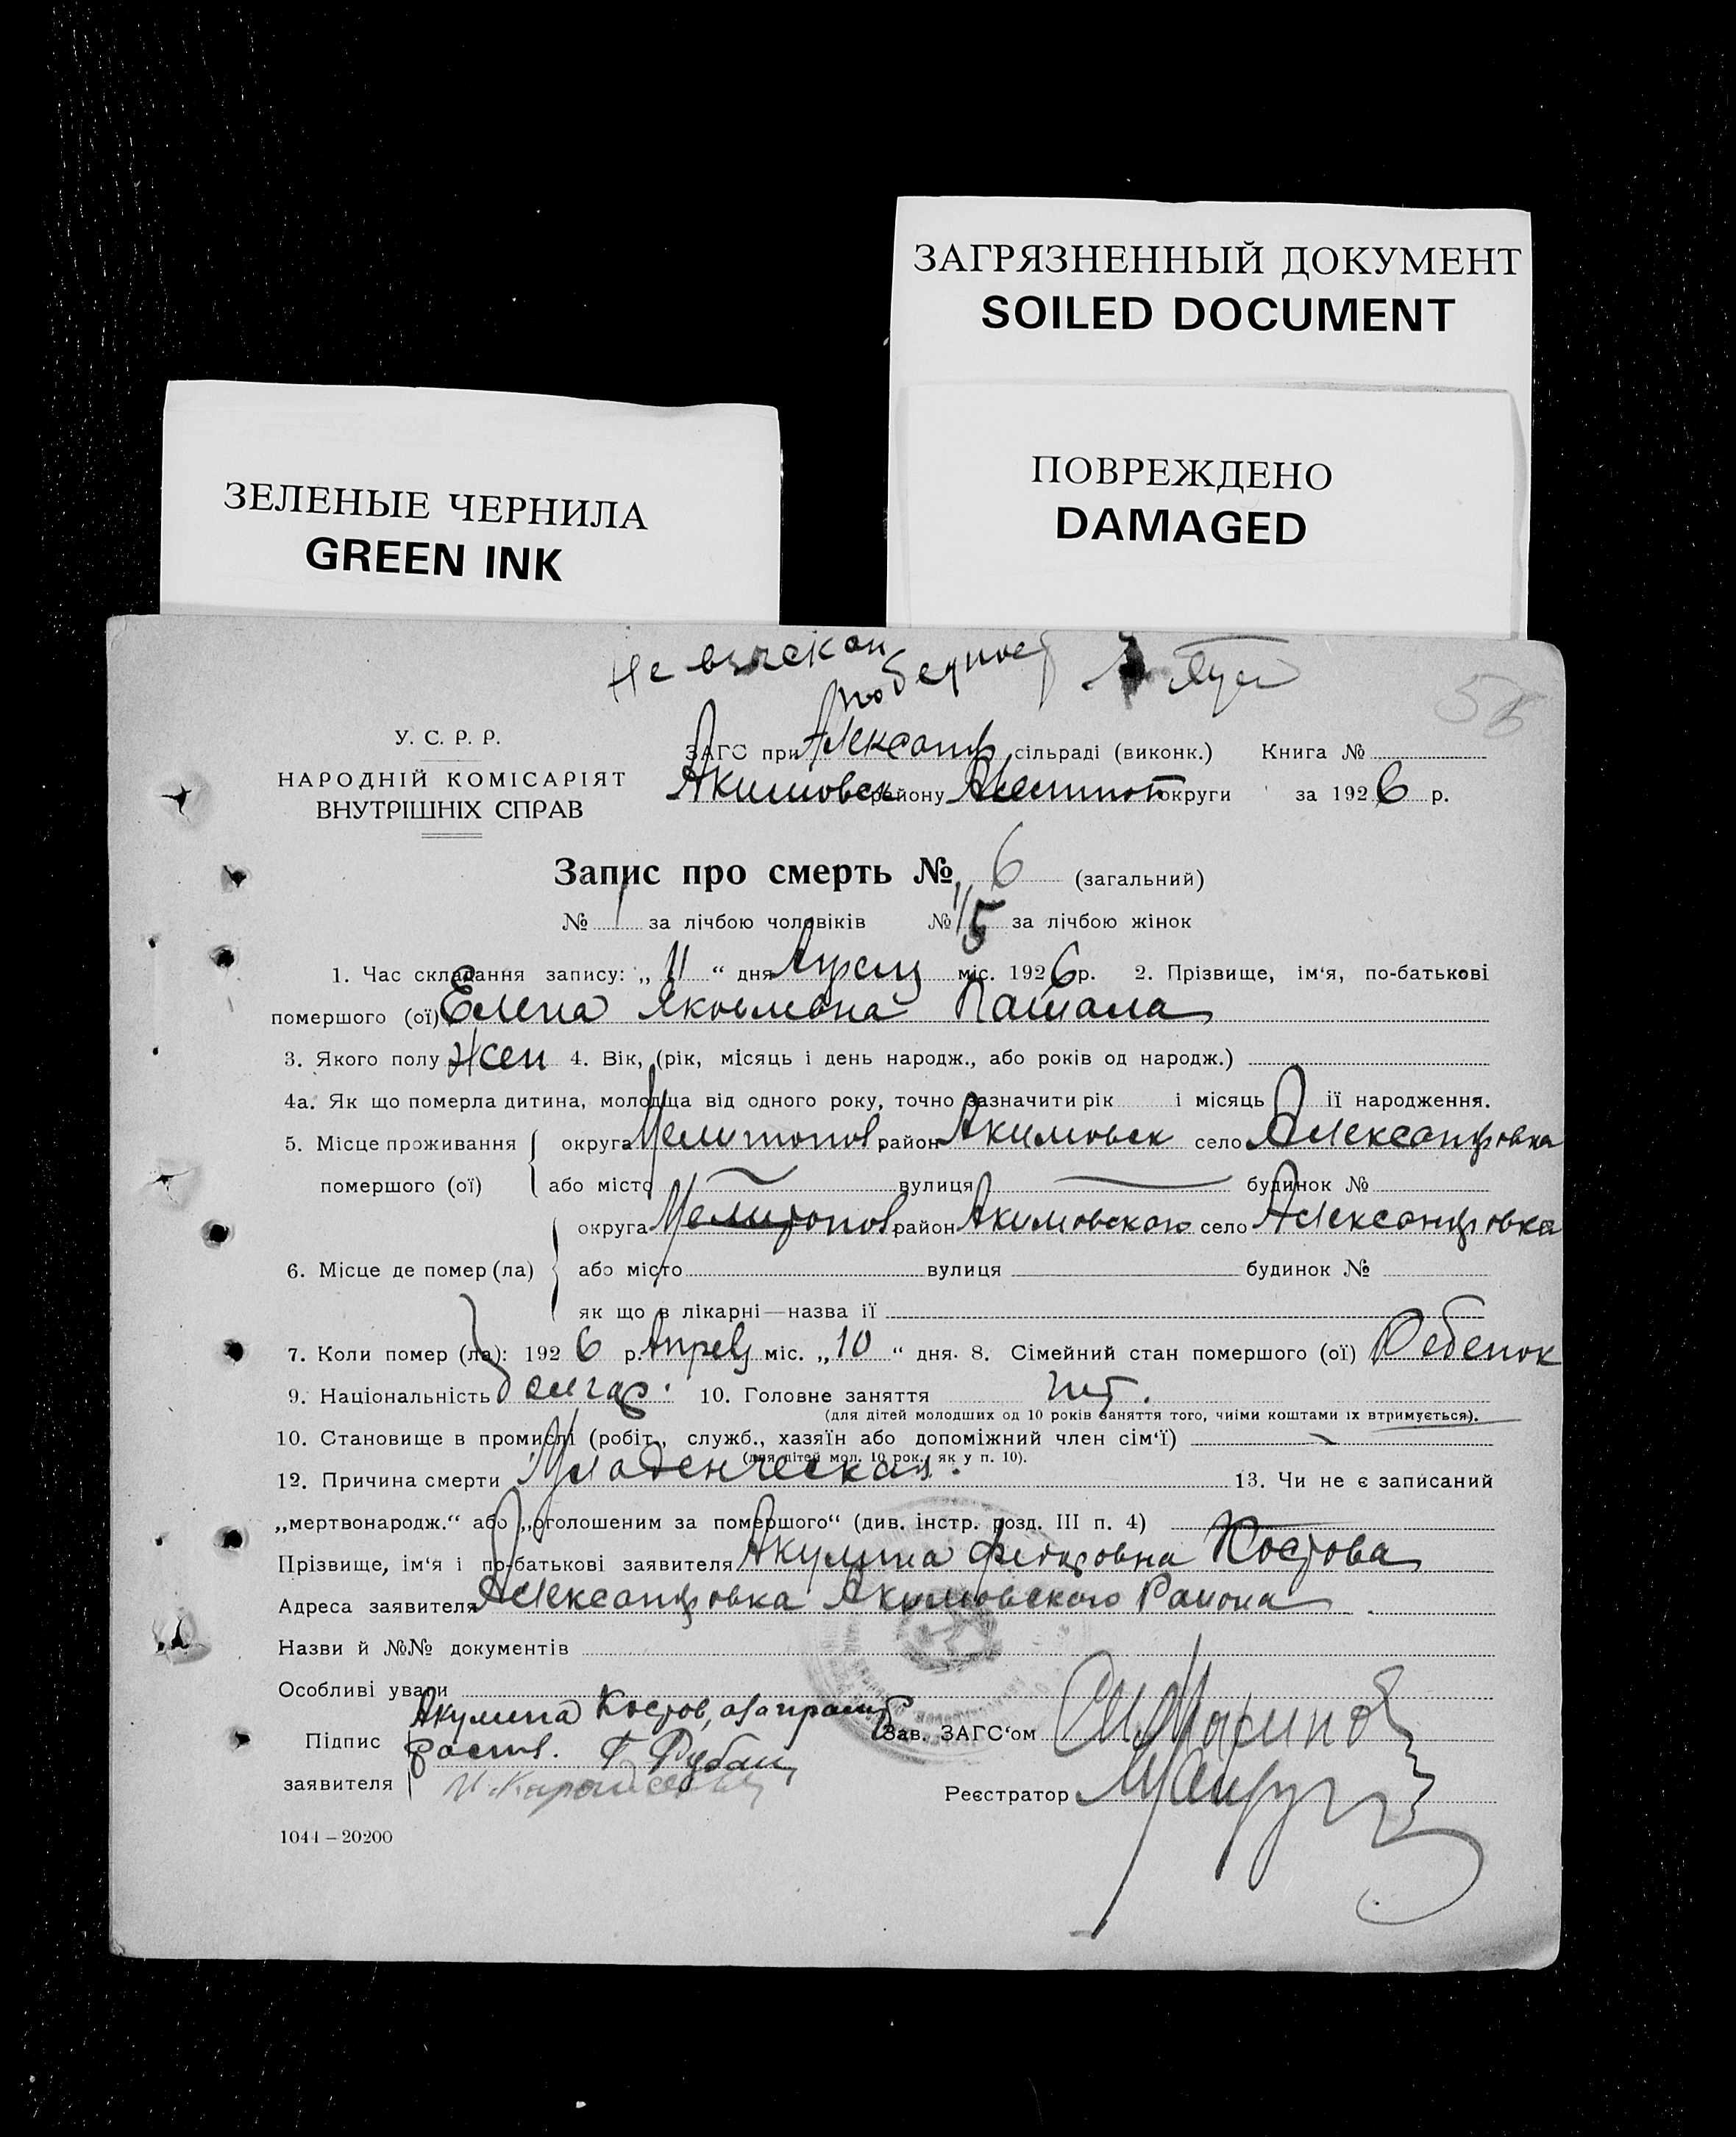 ЗАГРЯЗНЕННЫЙ ДОКУМЕНТ
SOILED DOCUMENT
ПОВРЕЖДЕНО
DAMAGED
ЗЕЛЕНЫЕ ЧЕРНИЛА
GREEN INK
Не взыскан
по бедност
У. С. Р. Р.
НАРОДНІЙ КОМІСАРІЯТ
ВНУТРІШНІХ СПРАВ
ЗАГС при Александр сільраді (виконк.) Книга №
Акимовск району Мелитоп округи за 1926 р.
Запис про смерть № 6 (загальний)
№ за лічбою чоловіків № 5 за лічбою жінок
1. Час складання запису: „ 11 “ дня Апреля міс. 1926 р. 2. Прізвище, ім‘я, по-батькові
помершого (ої) Елена Яковлевна
3. Якого полу жен 4. Вік, (рік, місяць і день народж., або років од народж.)
4а. Як що померла дитина, молодща від одного року, точно зазначити рік і місяць її народження.
5. Місце проживання округа Мелитопол район Акимовск село Александровка
помершого (ої) або місто вулиця будинок №
округа Мелитопол район Акимовского село Александровка
6. Місце де помер (ла) або місто вулиця будинок №
як що в лікарні—назва її
7. Коли помер (ла): 1926 р. Апреля міс. „10“ дня. 8. Сімейний стан помершого (ої) Ребенок
9. Національність болгар. 10. Головне заняття
(для дітей молодших од 10 років заняття того, чиїми коштами їх втримується).
10. Становище в промислі (робіт., служб., хазяїн або допоміжний член сім‘ї)
(для дітей мол. 10 рок., як у п. 10).
12. Причина смерти Младенческая. 13. Чи не є записаний
„мертвонародж.“ або „оголошеним за помершого“ (див. інстр. розд. III п. 4)
Прізвище, ім‘я і по-батькові заявителя Акулина Федоровна Костова
Адреса заявителя Александровка Акимовского Района
Назви й №№ документів
Особливі уваги
Акулина Костов,
Підпис Г Рубан
заявителя
Зав. ЗАГС‘ом
Реєстратор
1044 – 20200